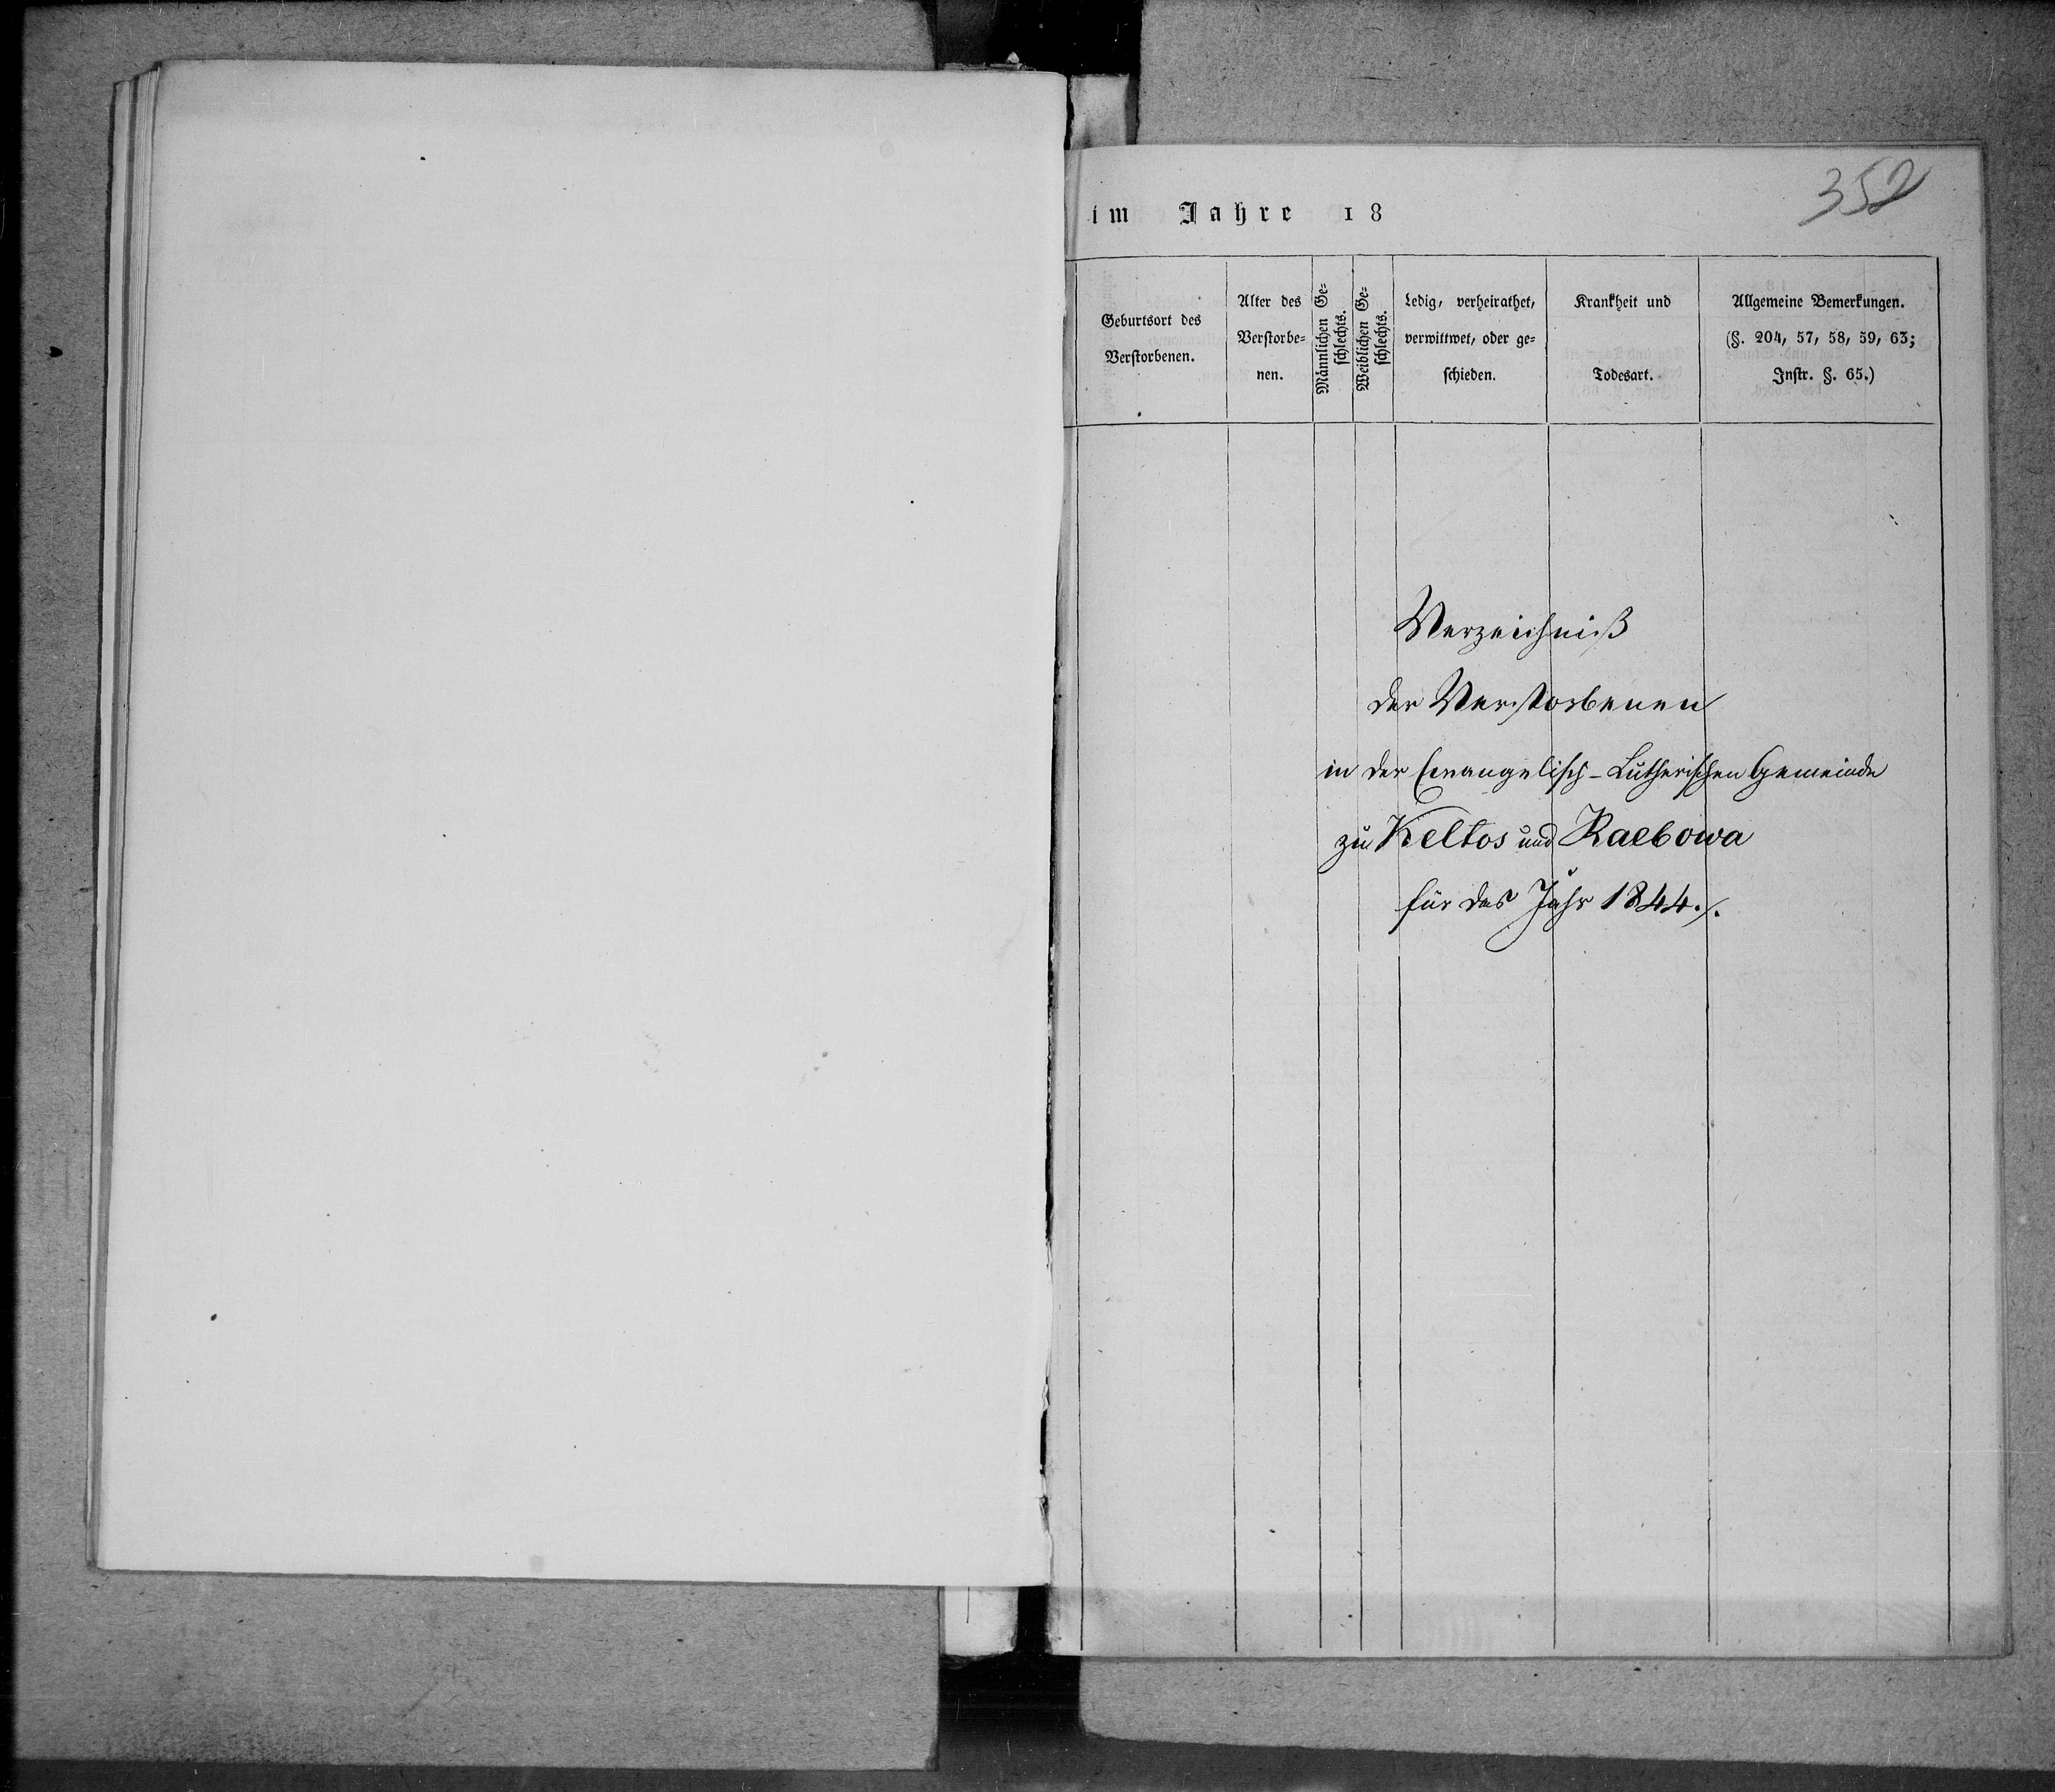 352
im Jahre 18
Geburtsort des
Verstorbenen.
Alter des
Verstorbe-
nen.
Männlichen Ge-
schlechts.
Weiblichen Ge-
schlechts.
Ledig, verheirathet,
verwittwet, oder ge-
schieden.
Krankheit und
Todesart.
Allgemeine Bemerkungen.
(§. 204, 57, 58, 59, 63;
Instr. §. 65.)
Verzeichniß
der Verstorbenen
in der Evangelisch-Lutherischen Gemeinde
zu Keltos und Raebowa
für das Jahr 1844./.